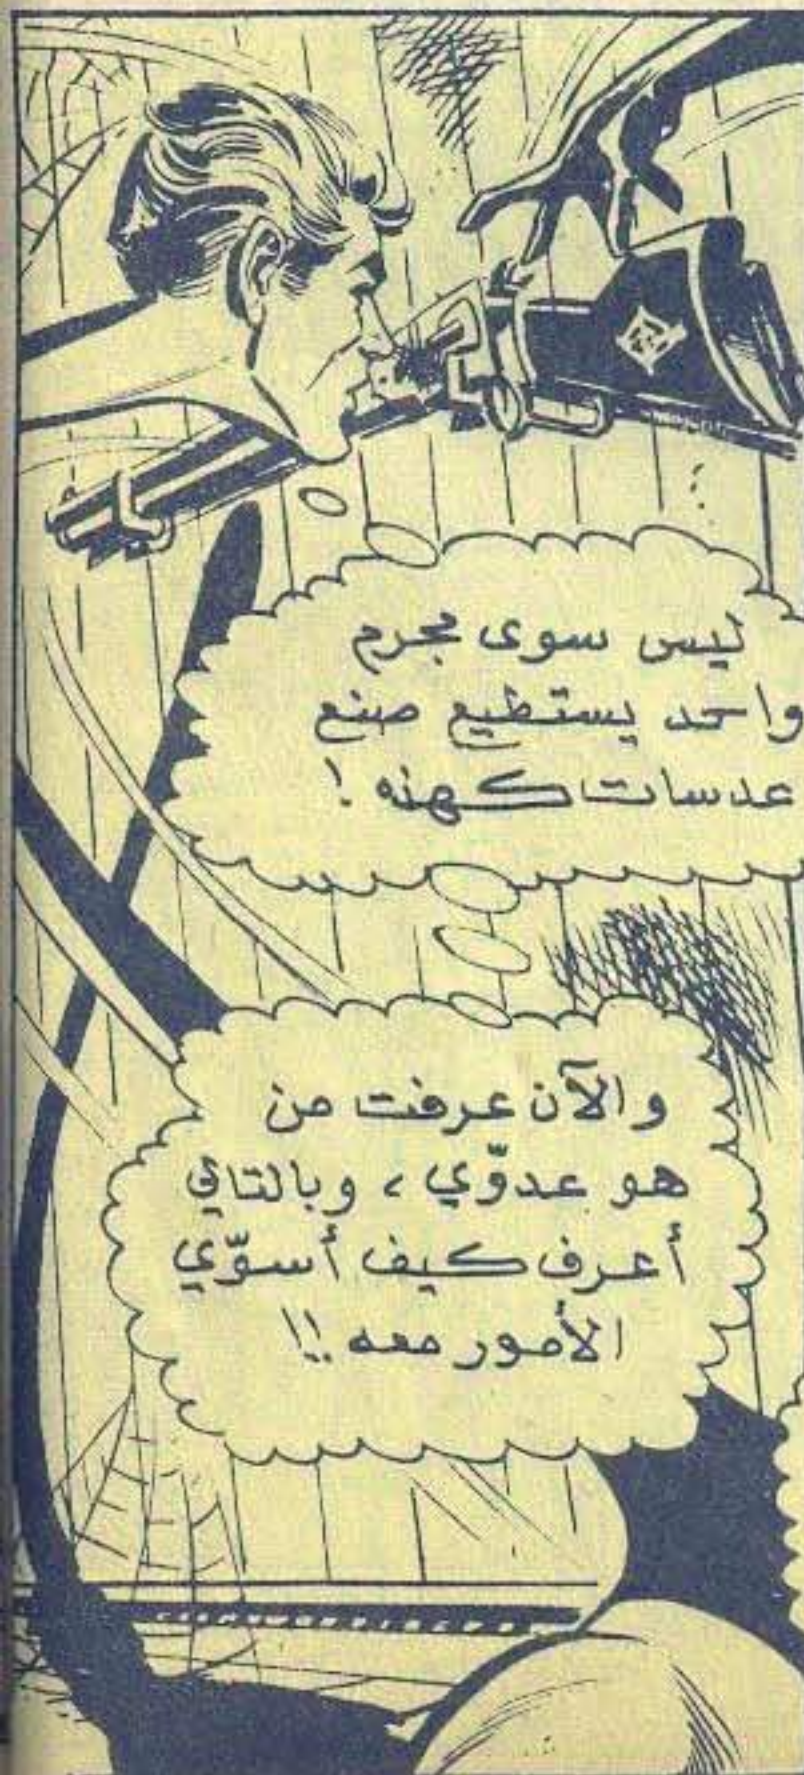 ليس سوى مجرم
واحد يستطيع صنع
عدسات كهذه !
والآن عرفت من
هو عدوّي ، وبالتالي
أعرف كيف أسوّي
الأمور معه !!